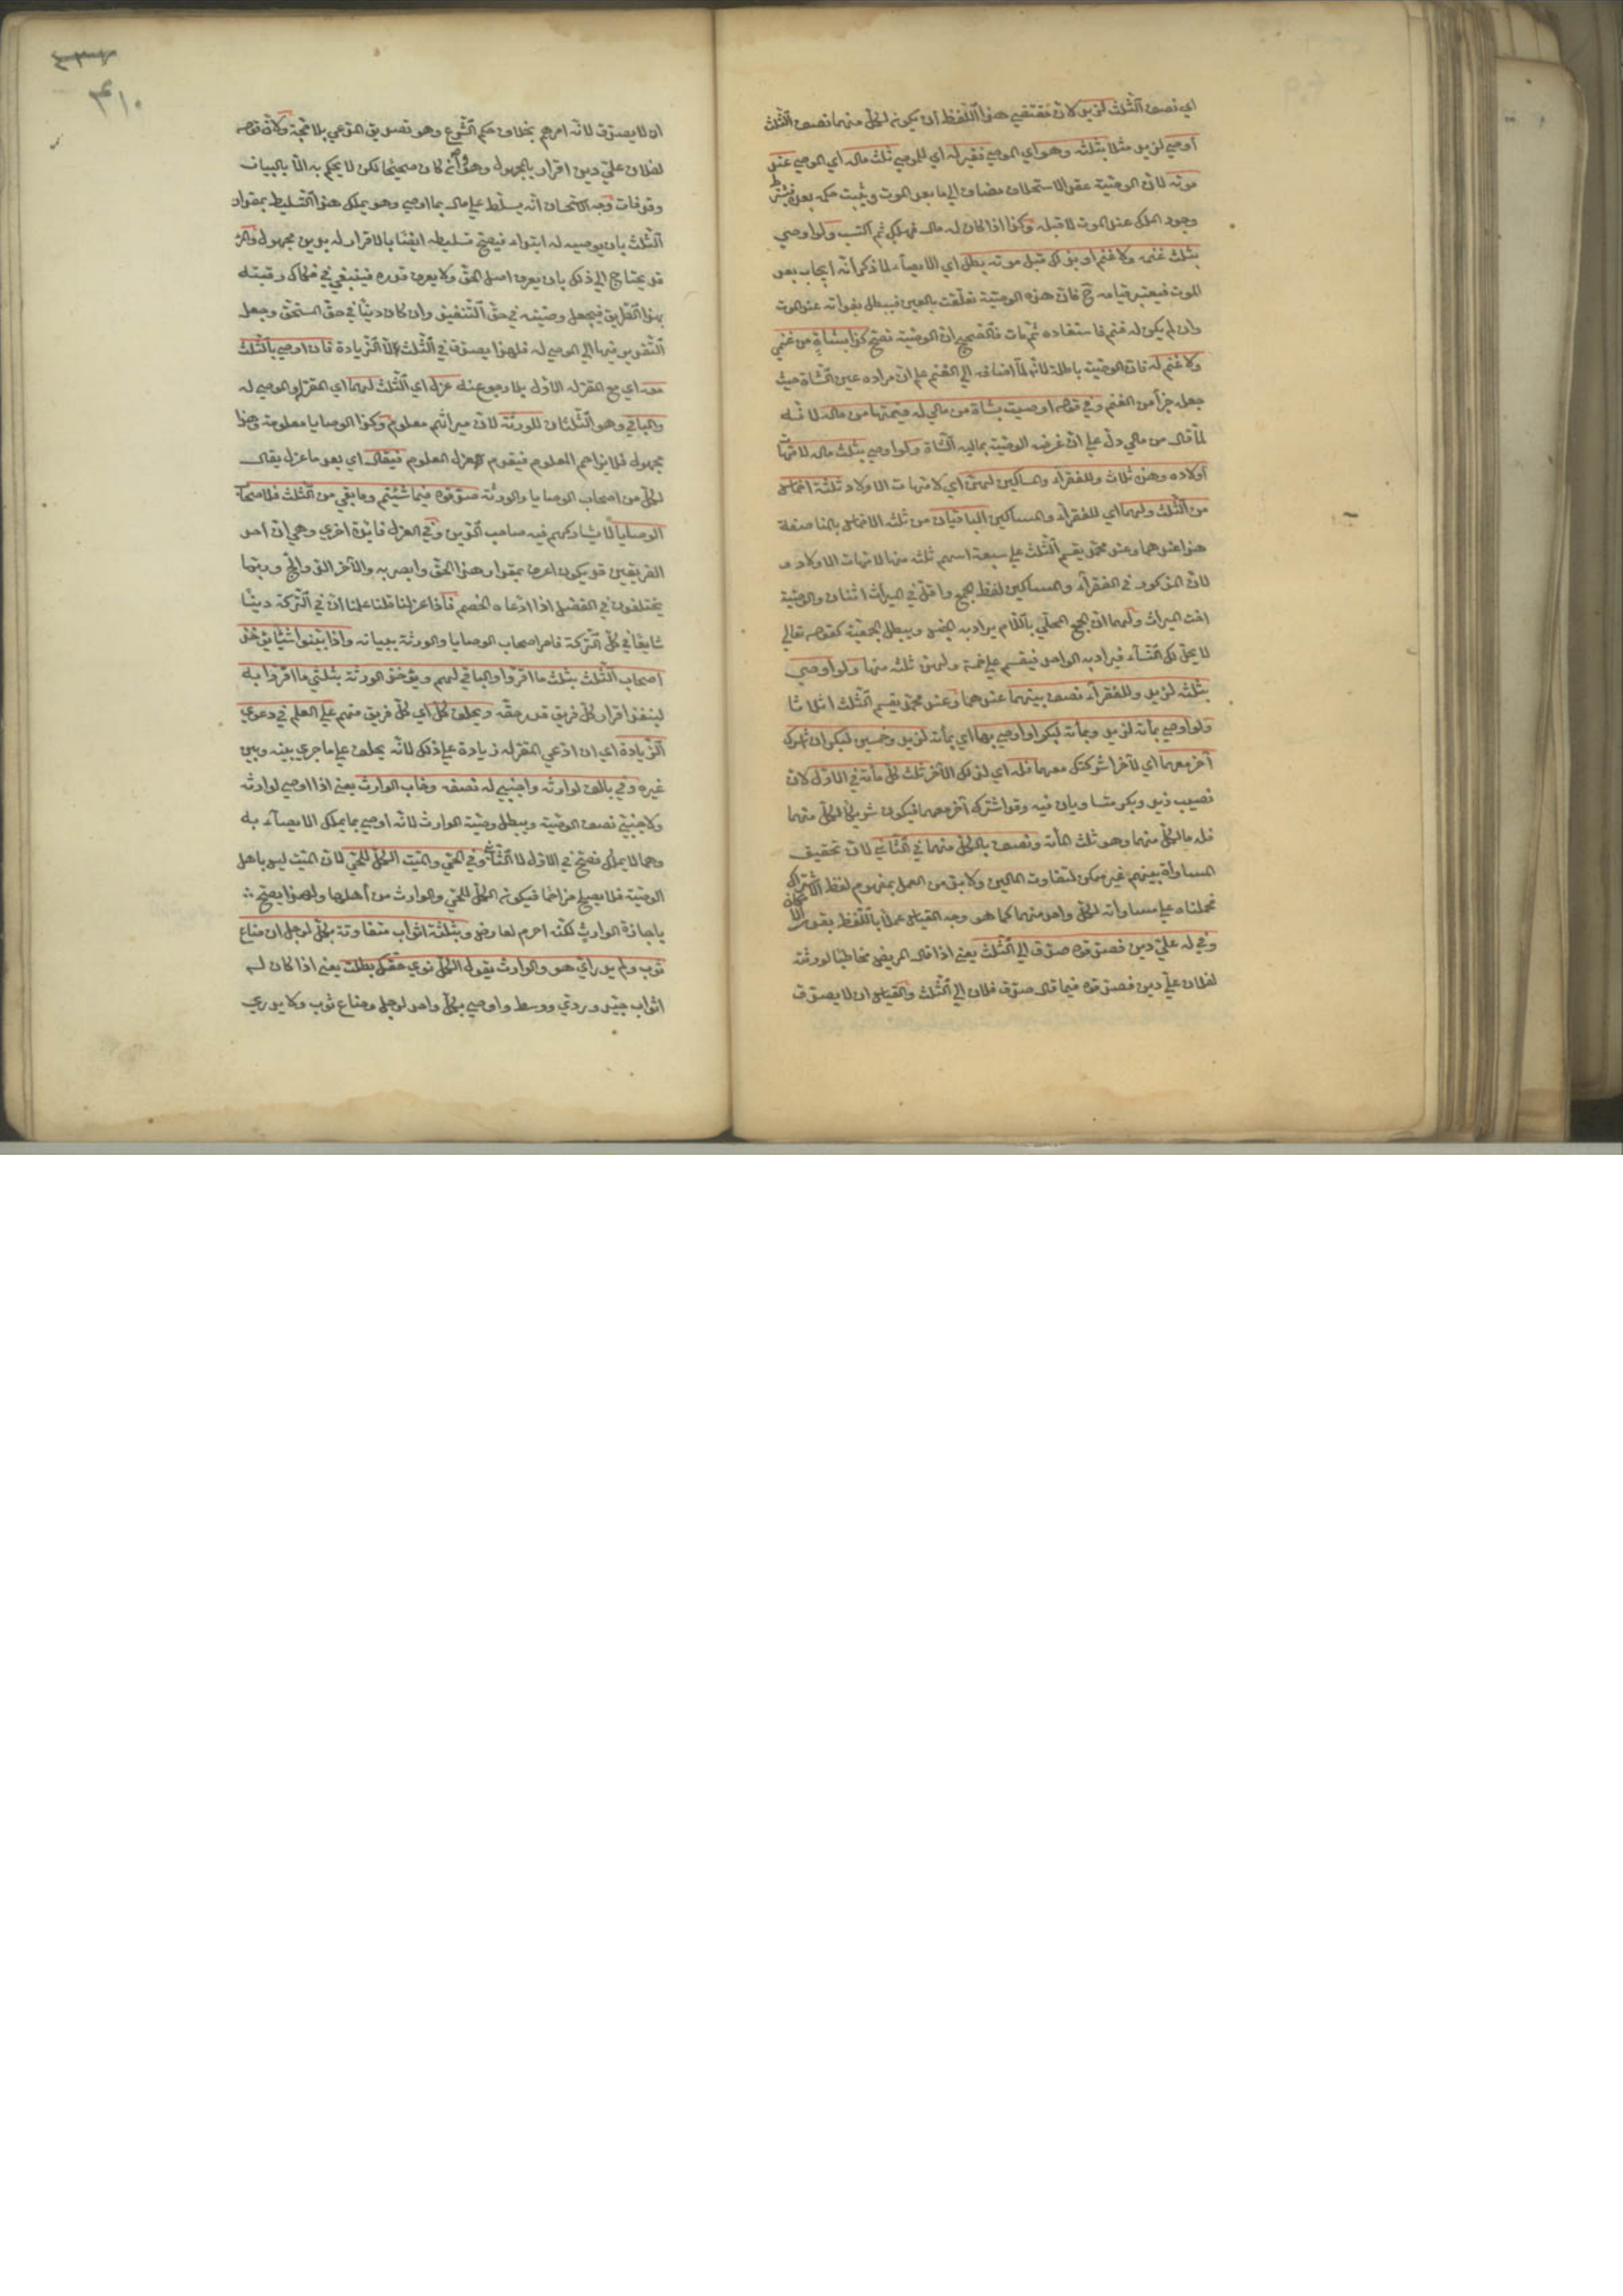 اي نصف الثلث لزيد لان مقتضي هذا اللفظ ان يكون لكل منهما نصف الثلث
أوصي لزيد مثلا بثلثه وهو اي الموصي فقير له اي للموصي ثلث ماله اي الموصي عند
موته لان الوصية عقد الاستخلاف مضاف الي ما بعد الموت ويثبت حكمه بعده فيشترط
وجود الملك عند الموت لا قبله وكذا اذا كان له مال فهلك ثم اكتسب ولو اوصي
بثلث غنمه ولا غنم او هلك قبل موته بطل اي الايصاء لما ذكر أنه ايجاب بعد
الموت فيعتبر قيامه ح فان هذه الوصية تعلقت بالعين فيبطل بفواته عند الموت
وان لم يكن له غنم فاستفاده ثم مات فالصحيح ان الوصية تصح كذا بشاةٍ من غنمي
ولا غنم له فان الوصية باطلة لانه لما اضافه الي الغنم علم ان مراده عين الشاة حيث
جعله جزأ من الغنم وفي قوله اوصيت بشاة من مالي له قيمتها من ماله لانه
لما قال من مالي دل علي ان غرضه الوصية بمالية الشاة ولو اوصي بثلث ماله لامهات
أولاده وهن ثلاث وللفقرآء والمساكين لهن اي لامهات الاولاد ثلثة اخماس
من الثلث ولهما اي للفقرآء والمساكين الباقيان من ثلثه الاخماس بالمناصفة
هذا عندهما وعند محمد يقسم الثلث علي سبعة اسهم ثلثة منها لامهات الاولاد
لان المذكور في الفقرآء والمساكين لفظ الجمع واقله في الميراث اثنان والوصية
اخت الميراث ولهما ان الجمع المحلي باللام يراد به الجنس ويبطل الجمعية كقوله تعالي
لا يحل لك النسآء فيراد به الواحد فيقسم علي خمسة ولهن ثلثة منها ولو اوصي
بثلثه لزيد وللفقرآء نصف بينهما عندهما وعند محمد يقسم الثلث اثلاثا
ولو اوصي بمأته لزيد وبمأته لبكر او اوصي بها اي بمأته لزيد وخمسين لبكر ان اشرك
آخر معهما اي لآخر اشركتك معهما فله اي لذلك الآخر ثلث كل مأته في الاول لان
نصيب زيد وبكر متساويان فيه وقد اشترك آخر معهما فيكون شريكا لكل منهما
فله ما لكل منهما وهو ثلث المأته ونصف ما لكل منهما في الثاني لان تحقيق
المساواة بينهم غير ممكن لتفاوت المالين ولا بد من العمل بمفهوم لفظ الاشتراك
فحملناه علي مساواته لكل واحد منهما كما هو وجه القياس عملا باللفظ بقدر الامكان
وفي له علي دين فصدقوه صدق الي الثلث يعني اذا قال المريض مخاطبا لورثته
لفلان علي دين فصدقوه فيما قال صدق فلان الي الثلث والقياس ان لا يصدق
٣١٠
ان لا يصدق لانه امرهم بخلاف حكم الشرع وهو تصديق المدعي بلا حجة ولان قوله
لفلان علي دين اقرار بالمجهول وهو وان كان صحيحا لكن لا يحكم به الا بالبيان
وقد فات وجه الاستحسان انه سلط علي ماله بما اوصي وهو يملك هذا التسليط بمقدار
الثلث بان يوصيه له ابتداء فيصح تسليطه ايضا بالاقرار له بدين مجهول والمرء
قد يحتاج الي ذلك بان يعرف اصل الحق ولا يعرف قدره فينبغي في فكاك رقبته
بهذا الطريق فيجعل وصيته في حق التنفيذ وان كان دينا في حق المستحق وجعل
التقدير فيها الي الموصي له فلهذا يصدق في الثلث لا الزيادة فان اوصي بالثلث
معه اي مع المقر له الاول بلا رجوع عنه عزل اي الثلث لهما اي المقر له والموصي له
والباقي وهو الثلثان للورثة لان ميراثهم معلوم وكذا الوصايا معلومة وهذا
مجهول فلا يزاحم المعلوم فيقوم عزل المعلوم فيقال اي بعد ما عزل يقال
لكل من اصحاب الوصايا والورثة صدقوه فيما شئتم وما بقي من الثلث فلاصحاب
الوصايا لا يشاركهم فيه صاحب الدين وفي العزل فائدة اخري وهي ان احد
الفريقين قد يكون اعرف بمقدار هذا الحق وابصر به والآخر الد والج وربما
يختلفون في الفضل اذا ادعاه الخصم فاذا عزلنا قلنا علمنا ان في التركة دينا
شايعا في كل التركة فامر اصحاب الوصايا والورثة ببيانه واذا بينوا شيئا يؤخذ
اصحاب الثلث بثلث ما اقروا والباقي لهم ويؤخذ الورثة بثلثي ما اقروا به
لينفذ اقرار كل فريق قدر حقه ويحلف كل اي كل فريق منهم علي العلم في دعوي
الزيادة اي ان ادعي المقر له زيادة علي ذلك لانه يحلف علي ما جري بينه وبين
غيره وفي بالف لوارثه واجنبي له نصفه وخاب الوارث يعني اذا اوصي لوارثه
ولاجنبي نصف الوصية ويبطل وصية الوارث لانه اوصي بما يملك الايصآء به
وبما لا يملك فصح في الاول لا الثاني وفي الحي والميت الكل للحي لان الميت ليس باهل
الوصية فلا يصلح مزاحما فيكون الكل للحي والوارث من أهلها ولهذا يصح
باجازة الوارث لكنه احرم لعارض وبثلثة اثواب متفاوتة بكل لرجل ان ضاع
ثوب ولم يدر اي هو والوارث يقول لكل توي حقك بطلت يعني اذا كان له
اثواب جيد وردي ووسط واوصي بكل واحد لرجل وضاع ثوب ولا يدري